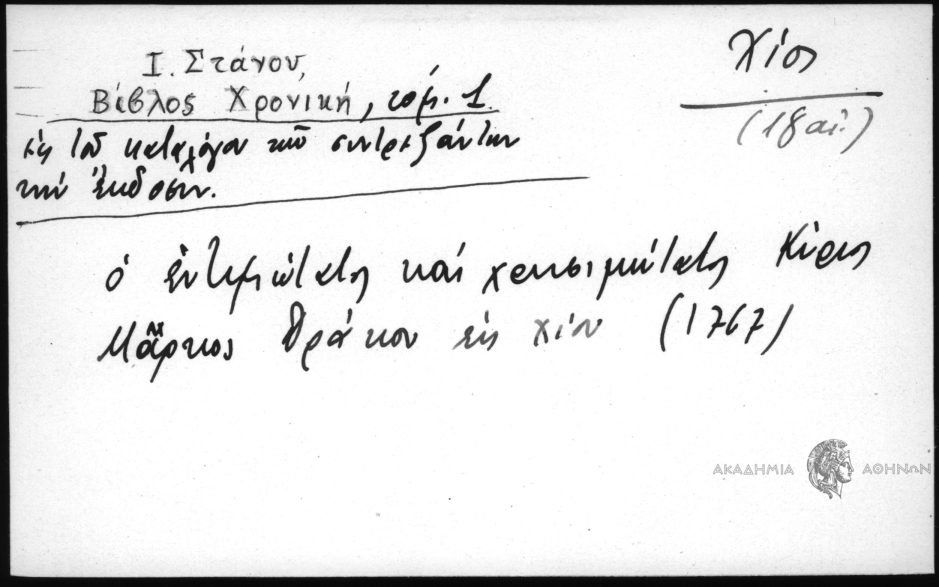 Ι. Στάνου,
Βίβλος Χρονική, τόμ. 1.
ἐκ τοῦ καταλόγου τῶν συντρεξάντων
τὴν ἔκδοσιν.
Χίος
(18 αἰ.)
ὁ ἐντιμώτατος καὶ χρησιμώτατος Κύριος
Μάρκος Δράκου εἰς Χίον (1767)
ΑΚΑΔΗΜΙΑ ΑΘΗΝΩΝ